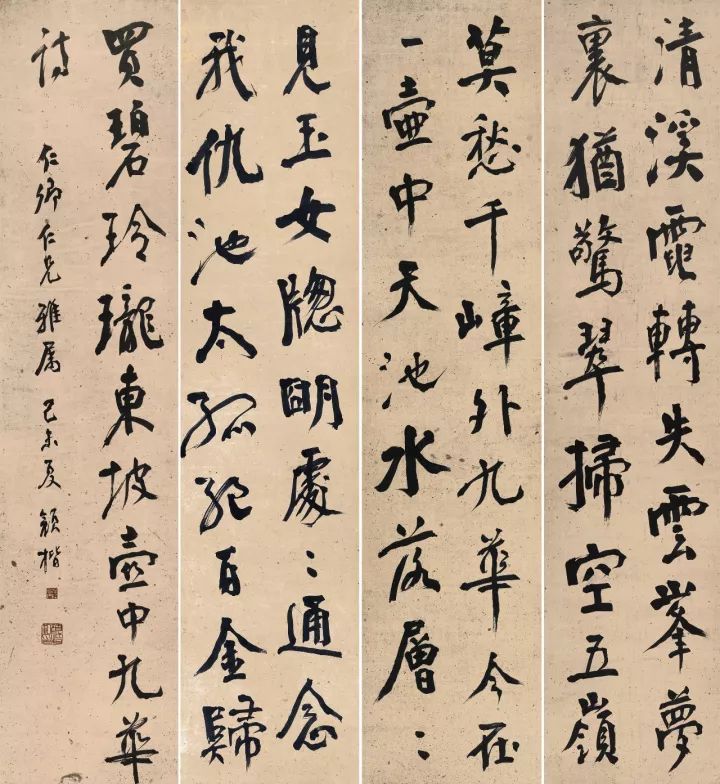 清溪電轉失雲峯夢
裏猶驚翠掃空五嶺
莫愁千嶂外九華今在
一壺中天池水落層〻
見玉女牕朙處〻通念
我仇池太孤絕百金歸
買碧玲瓏東坡壺中九華
詩
仁卿仁兄雅属 己未夏